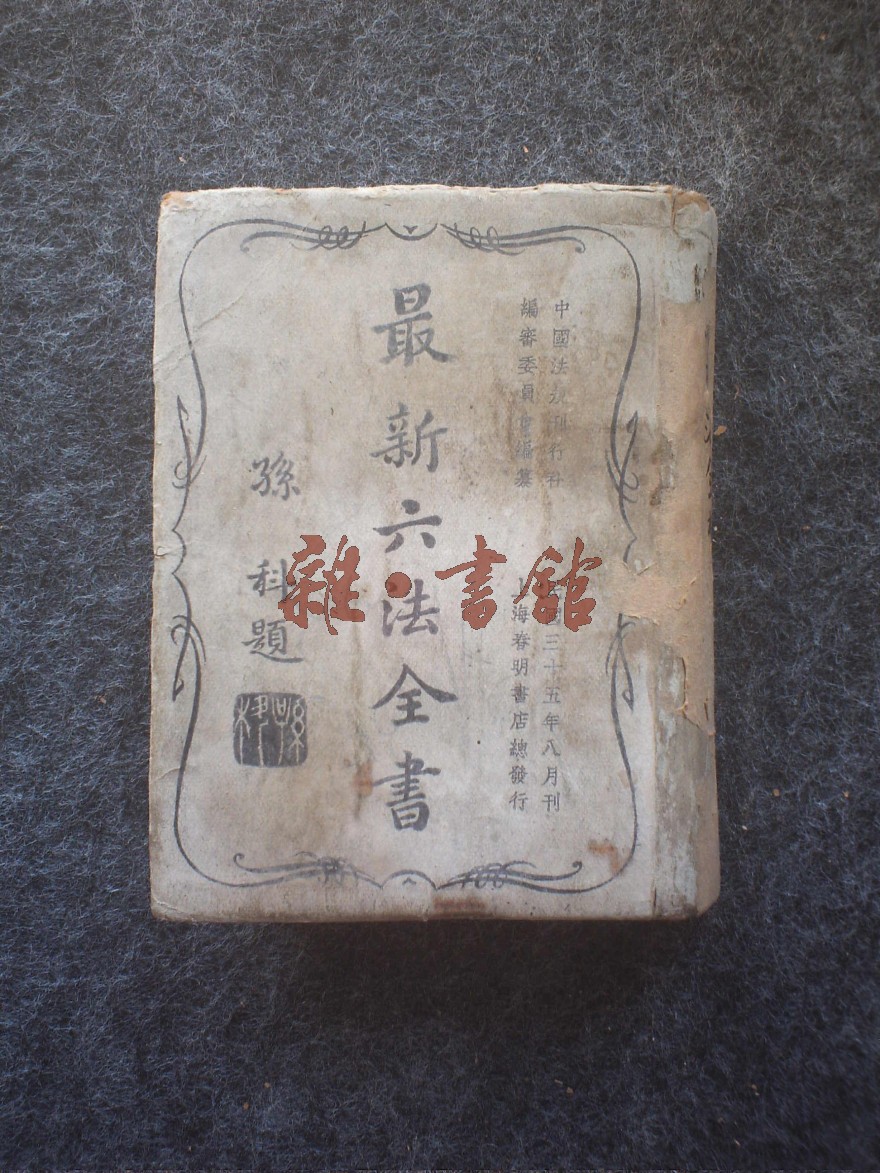 中國法規刊行社
編審委員會編纂
民國三十五年八月刊
上海春明書店總發行
最新六法全書
孫科題
孫科
雜·書館